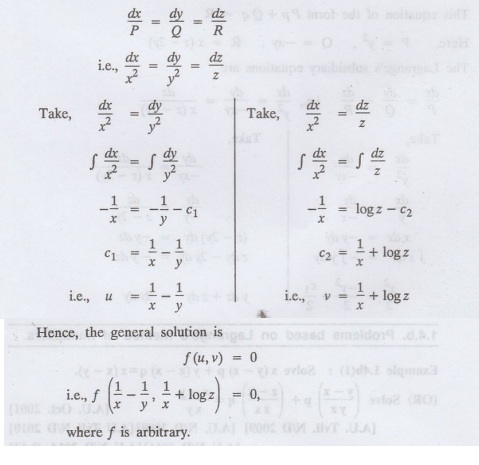 dx/P = dy/Q = dz/R
i.e., dx/x² = dy/y² = dz/z
Take, dx/x² = dy/y²
∫ dx/x² = ∫ dy/y²
-1/x = -1/y - c₁
c₁ = 1/x - 1/y
i.e., u = 1/x - 1/y
Take, dx/x² = dz/z
∫ dx/x² = ∫ dz/z
-1/x = log z - c₂
c₂ = 1/x + log z
i.e., v = 1/x + log z
Hence, the general solution is
f(u, v) = 0
i.e., f (1/x - 1/y, 1/x + log z) = 0,
where f is arbitrary.